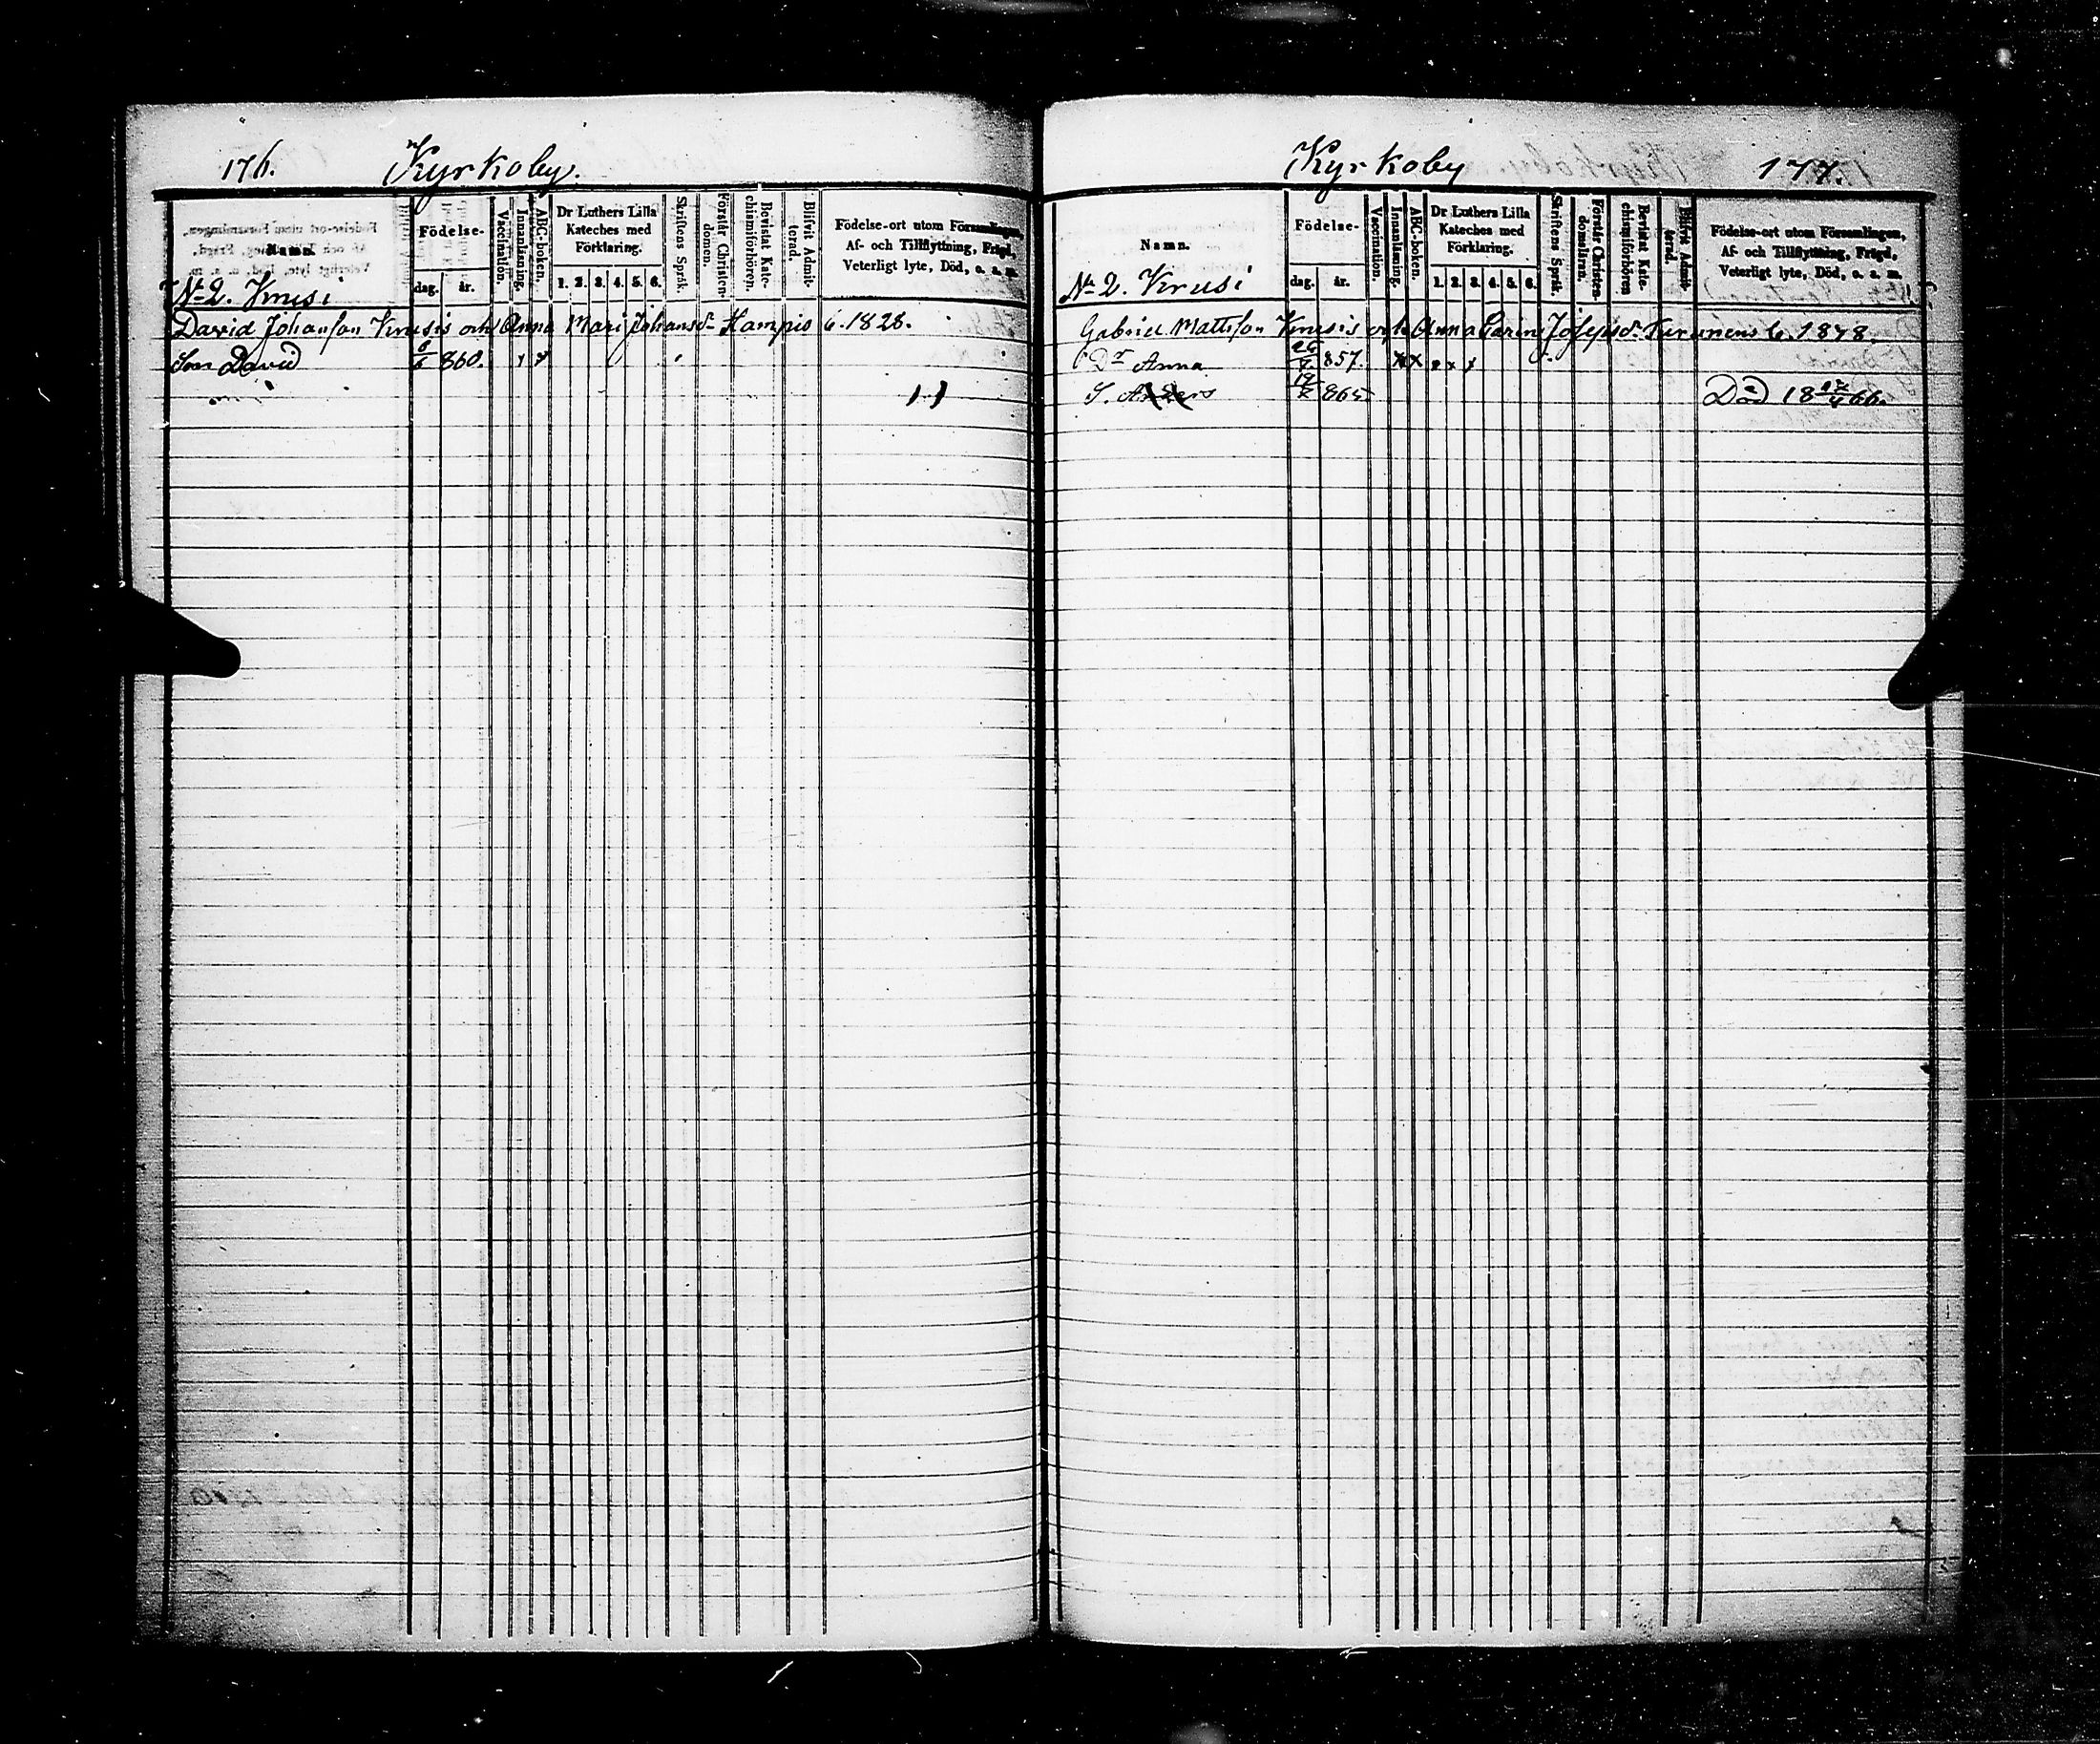 176. Kyrkoby.
Namn.
Födelse-
dag. år.
Vaccination.
Innanläsning.
ABC-boken.
Dr Luthers Lilla
Kateches med
Förklaring.
1. 2. 3. 4. 5. 6.
Skriftens Språk.
Förstår Christen-
domen.
Bevistat Kate-
chismiförhören.
Blifvit Admit-
terad.
Födelse-ort utom Församlingen,
Af- och Tillflyttning, Frägd,
Veterligt lyte, Död, o. s. m.
No 2. Krusi
David Johansson Krusis och Anna Mari Johansdr Hampis b. 1828.
Son David 860.
Kyrkoby 177.
Namn.
Födelse-
dag. år.
Vaccination.
Innanläsning.
ABC-boken.
Dr Luthers Lilla
Kateches med
Förklaring.
1. 2. 3. 4. 5. 6.
Skriftens Språk.
Förstår Christen-
domsläran.
Bevistat Kate-
chismiförhören
Blifvit Admit-
terad.
Födelse-ort utom Församlingen,
Af- och Tillflyttning, Frägd,
Veterligt lyte, Död, o. s. m.
No 2. Krusi
Gabriel Mattsson Krusis och Anna Carin Josephsdr b. 1848.
Dr Anna 857. x x x x x
S. Anders 19 865 Död 18 66.